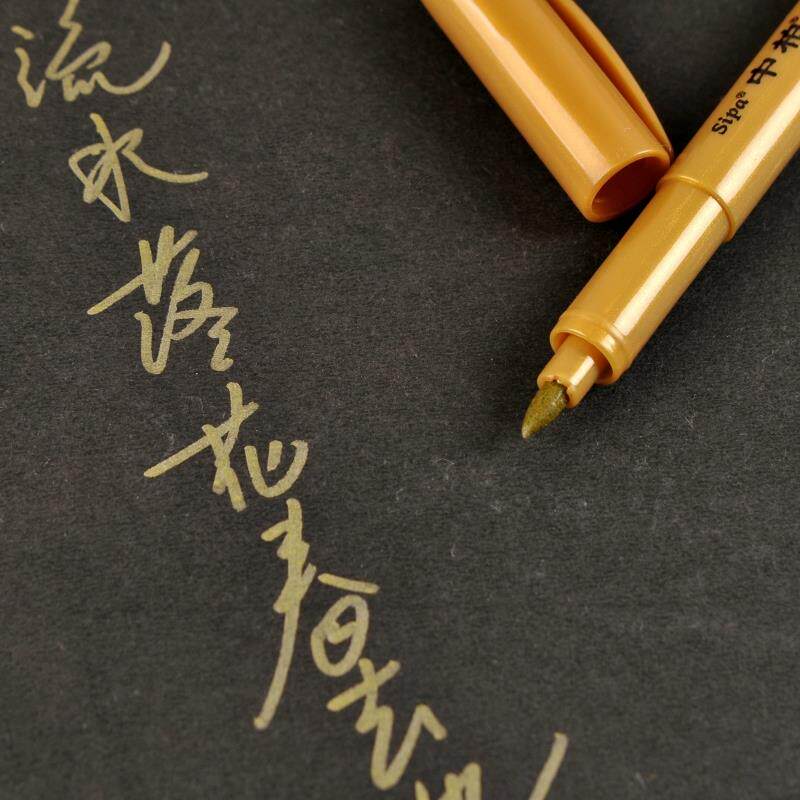 流水落花春去也
Sipa® 中柏®